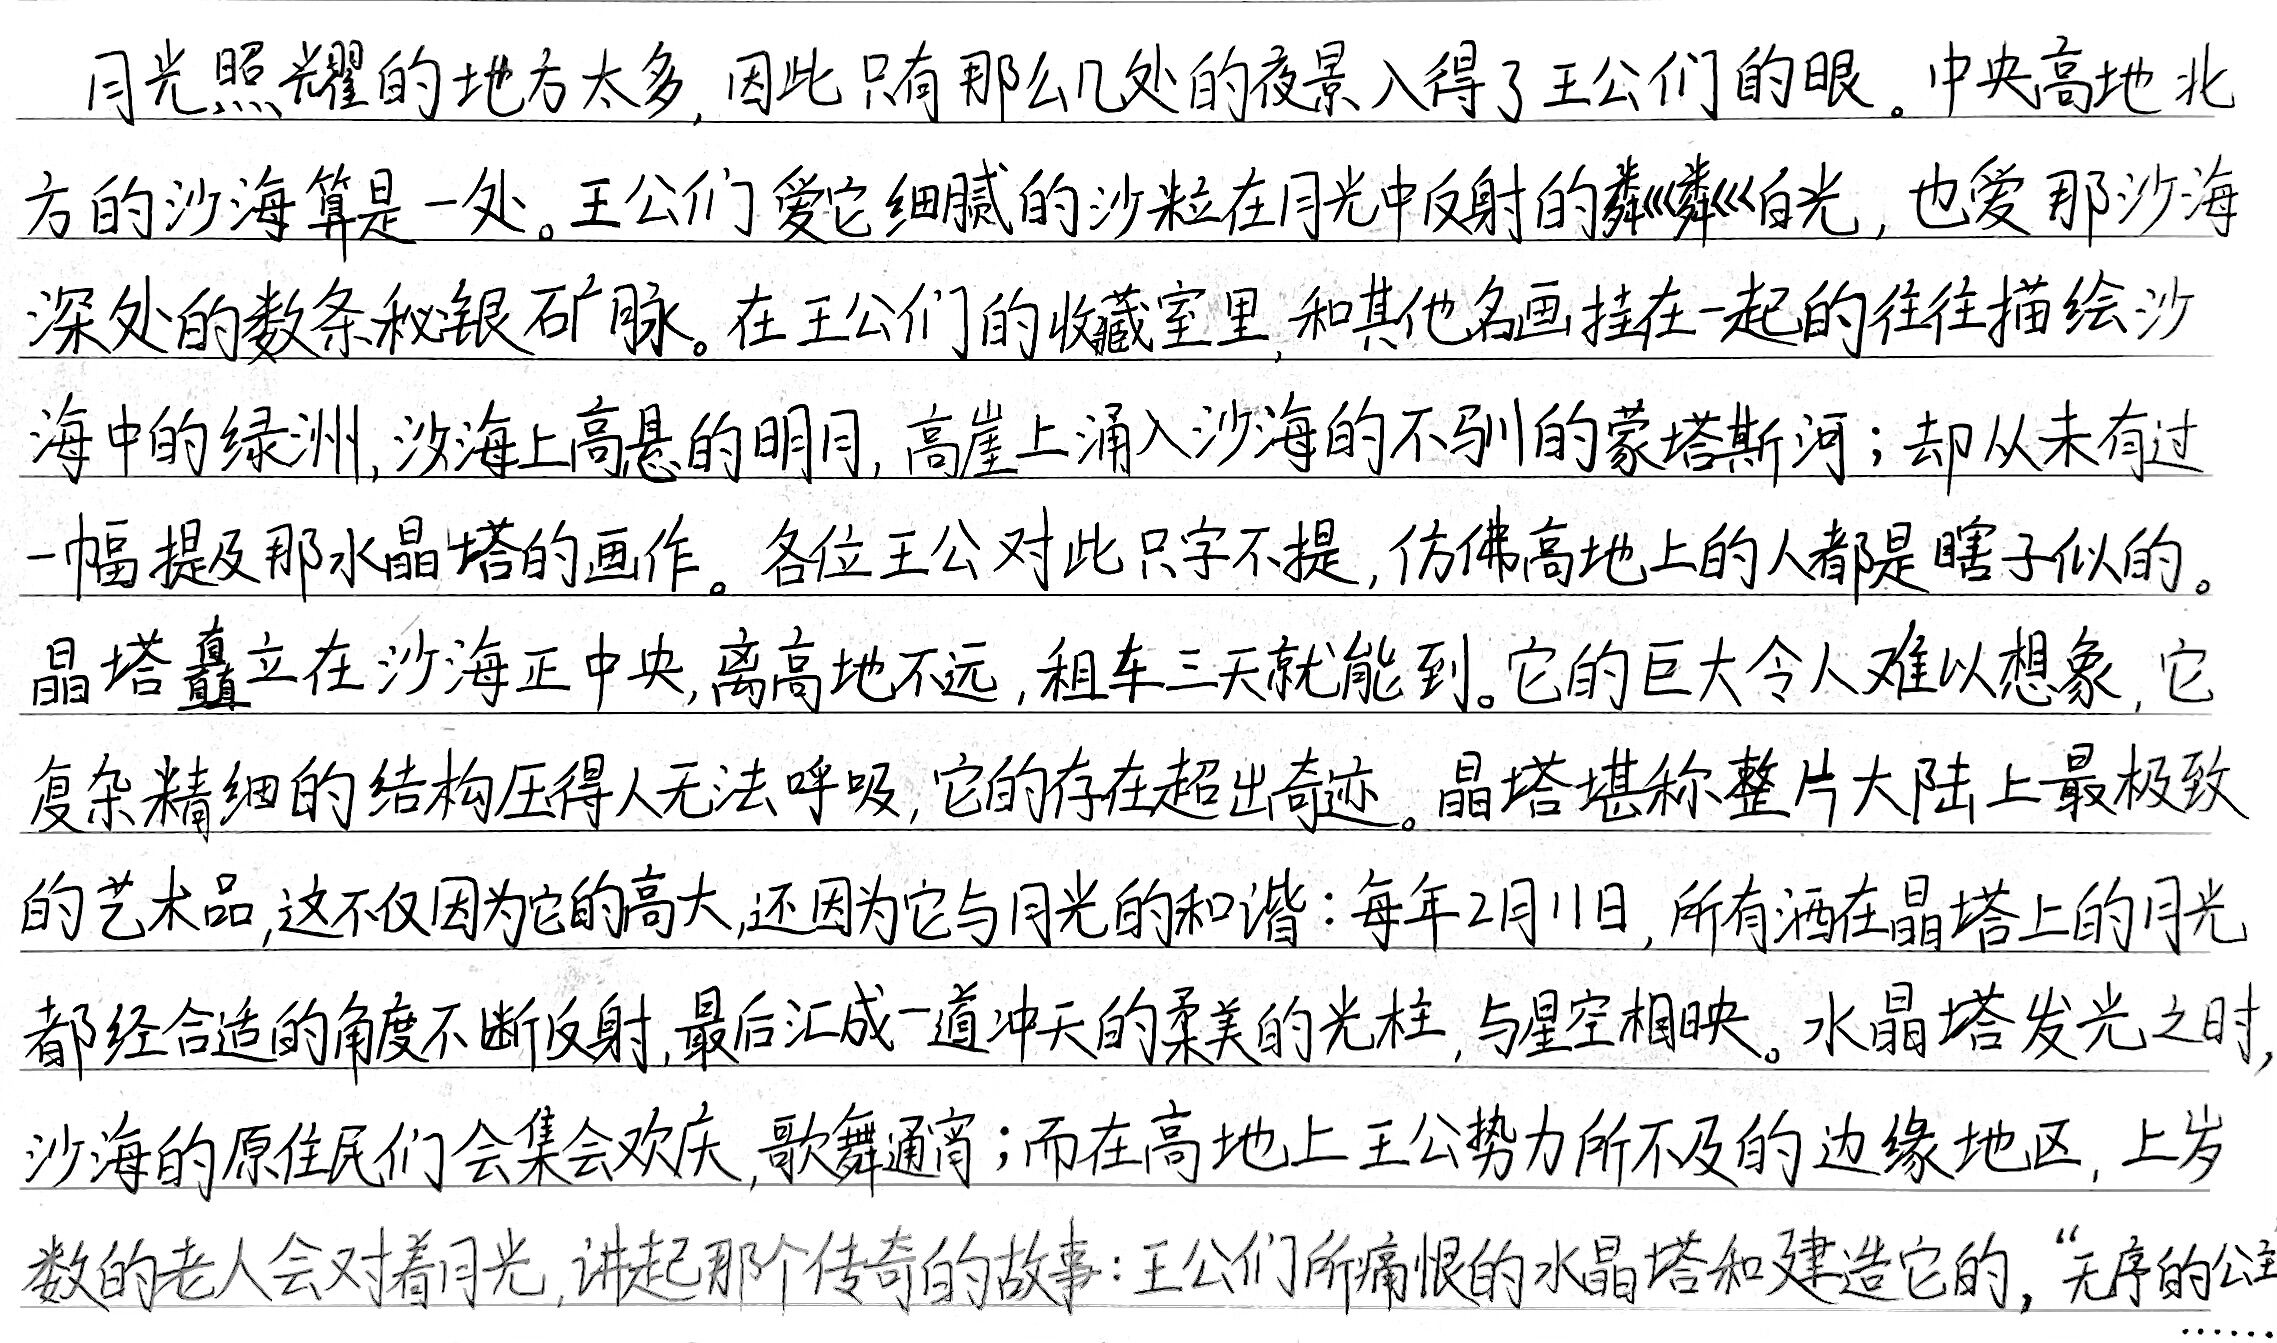 月光照耀的地方太多,因此只有那么几处的夜景入得了王公们的眼。中央高地北
方的沙海算是一处。王公们爱它细腻的沙粒在月光中反射的粼粼白光,也爱那沙海
深处的数条秘银石矿脉。在王公们的收藏室里,和其他名画挂在一起的往往描绘沙
海中的绿洲,沙海上高悬的明月,高崖上涌入沙海的不驯的蒙塔斯河;却从未有过
一幅提及那水晶塔的画作。各位王公对此只字不提,仿佛高地上的人都是瞎子似的。
晶塔矗立在沙海正中央,离高地不远,租车三天就能到。它的巨大令人难以想象,它
复杂精细的结构压得人无法呼吸,它的存在超出奇迹。晶塔堪称整片大陆上最极致
的艺术品,这不仅因为它的高大,还因为它与月光的和谐:每年2月11日,所有洒在晶塔上的月光
都经合适的角度不断反射,最后汇成一道冲天的柔美的光柱,与星空相映。水晶塔发光之时,
沙海的原住民们会集会欢庆,歌舞通宵;而在高地上王公势力所不及的边缘地区,上岁
数的老人会对着月光,讲起那个传奇的故事:王公们所痛恨的水晶塔和建造它的,“无序的公主
……